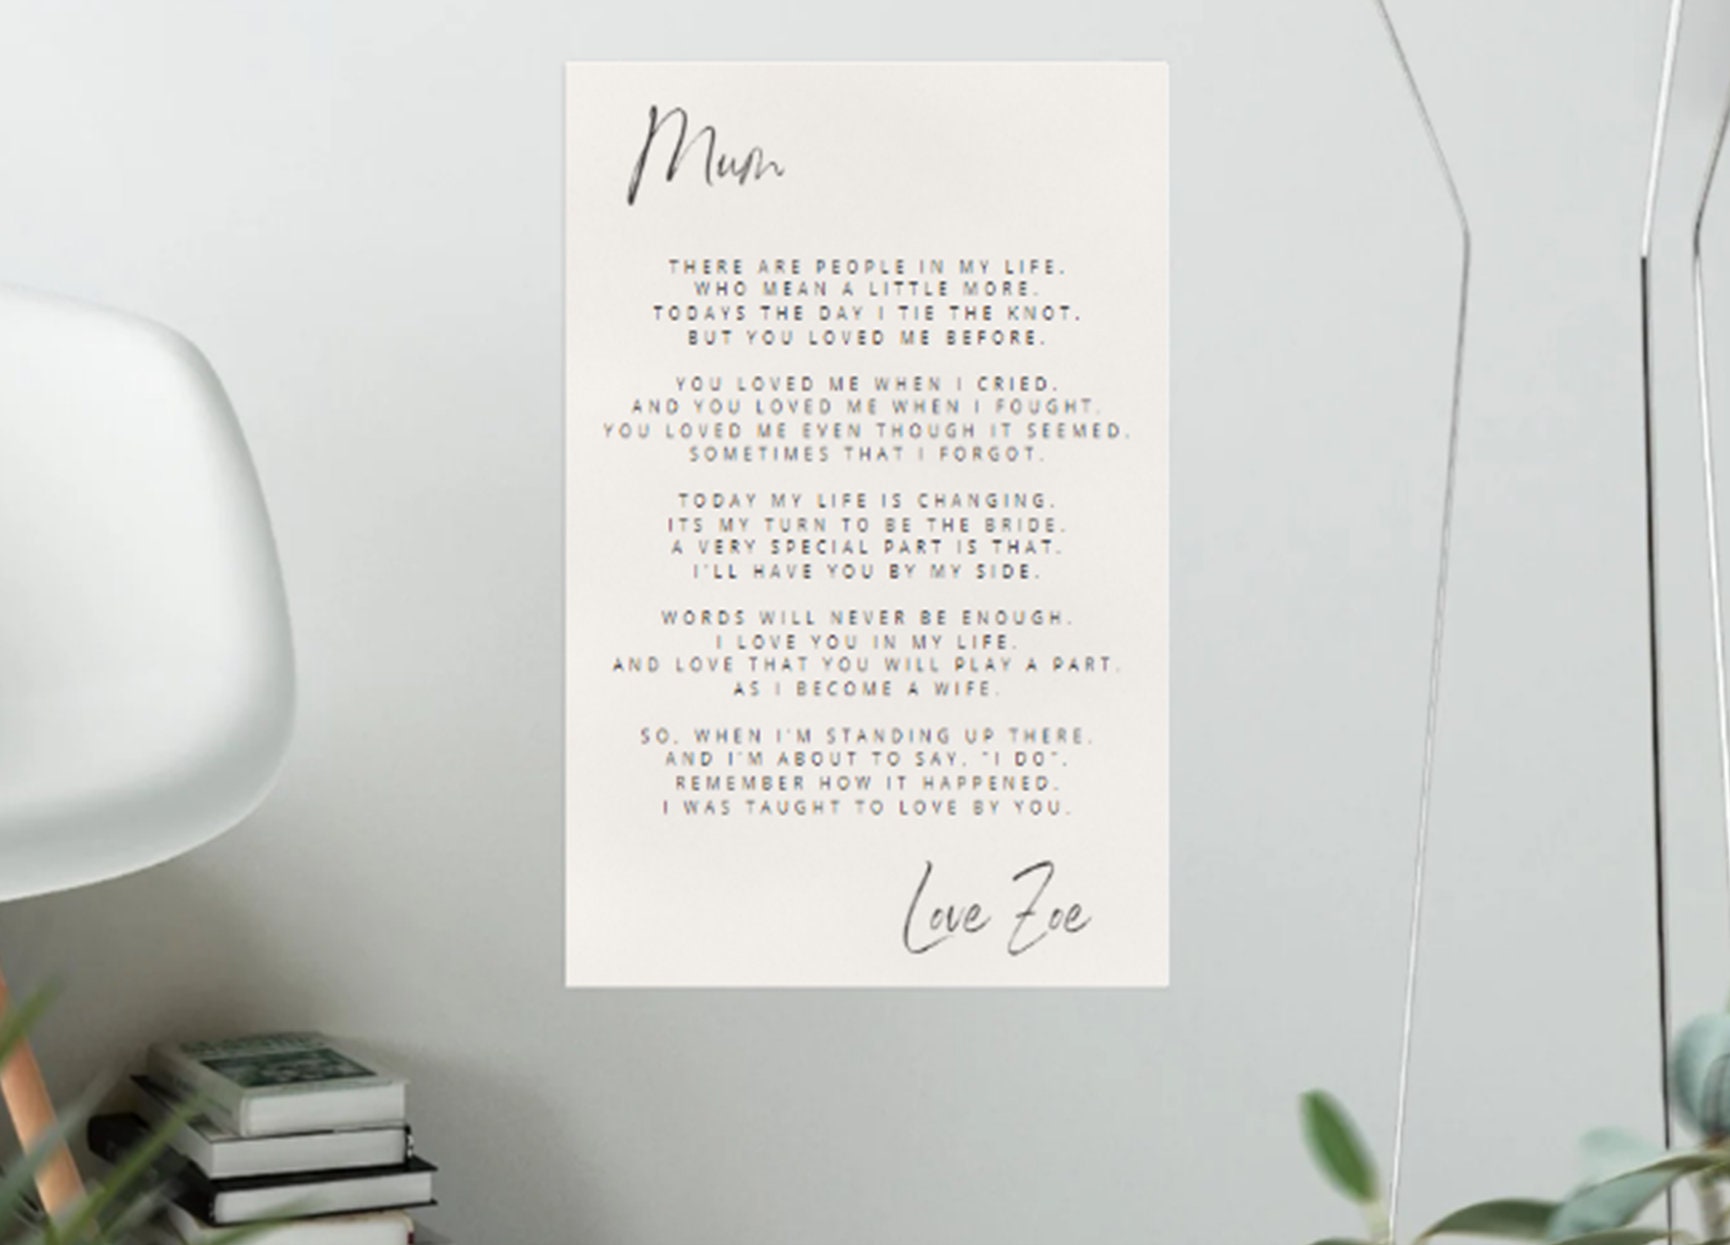 Mum
THERE ARE PEOPLE IN MY LIFE,
WHO MEAN A LITTLE MORE.
TODAYS THE DAY I TIE THE KNOT,
BUT YOU LOVED ME BEFORE.
YOU LOVED ME WHEN I CRIED,
AND YOU LOVED ME WHEN I FOUGHT.
YOU LOVED ME EVEN THOUGH IT SEEMED,
SOMETIMES THAT I FORGOT.
TODAY MY LIFE IS CHANGING,
ITS MY TURN TO BE THE BRIDE.
A VERY SPECIAL PART IS THAT,
I'LL HAVE YOU BY MY SIDE.
WORDS WILL NEVER BE ENOUGH,
I LOVE YOU IN MY LIFE.
AND LOVE THAT YOU WILL PLAY A PART,
AS I BECOME A WIFE.
SO, WHEN I'M STANDING UP THERE,
AND I'M ABOUT TO SAY, "I DO",
REMEMBER HOW IT HAPPENED,
I WAS TAUGHT TO LOVE BY YOU.
Love Zoe